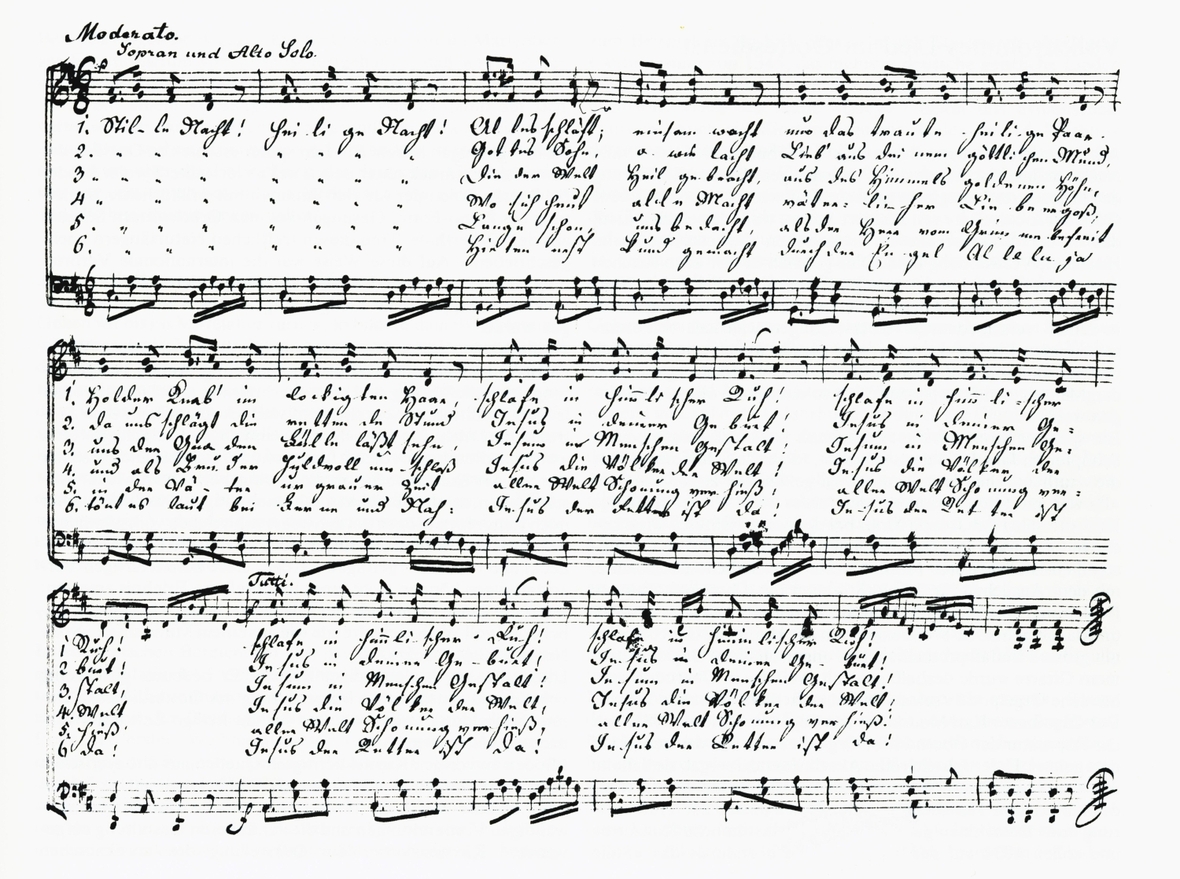 Moderato.
Sopran und Alto Solo.
1. Stil- le Nacht! Hei li ge Nacht! Al les schläft; einsam wacht nur das traute heili-ge Paar.
2. " " " " " " " Gottes Sohn, o wie lacht Lieb' aus dei nem göttli chen Mund,
3 " " " " " " " Die der Welt Heil ge bracht, aus des Himmels goldenen Höhn,
4 " " " " " " " Wo sich heut alle Macht väter- licher Lie be ergoß,
5. " " " " " " " Lange schon, uns bedacht, als der Herr vom Grimme befreit
6. " " " " " " " Hirten erst kund gemacht durch der En gel Al le lu ja
1. Holder Knab' im lockigten Haare, schlafe in him̅li scher Ruh! schlafe in him̅ li-scher
2. da uns schlägt die retten de Stund Jesus in deiner Ge burt! Jesus in deiner Ge-
3. uns der Gna den Fülle läßt sehn, Jesum in Menschen Gestalt! Jesum in Menschen Ge-
4. und als Bru der Huldvoll um schloß Jesus die Völker der Welt! Je sus die Völker der
5. in der Vä- ter ur grauer Zeit aller Welt Schonung ver hieß! aller Welt Scho nung ver-
6. tönt es laut bei Ferne und Nah: Je sus der Retter ist da! Je-sus der Ret ter ist
Tutti.
1 Ruh! schlafe in him̅li scher Ruh! schlafe in himmlischer Ruh!
2 burt! Je sus in deiner Ge-burt! Je sus in deiner Ge- burt!
3. stalt, Je sum in Menschen Gestalt! Je sum in Menschen Gestalt!
4. Welt Je sus die Völker der Welt, Je sus die Völker der Welt!
5. hieß! aller Welt Scho nung ver hieß, aller Welt Scho nung ver hieß!
6 da! Jesus der Retter ist da! Je sus der Retter ist da!